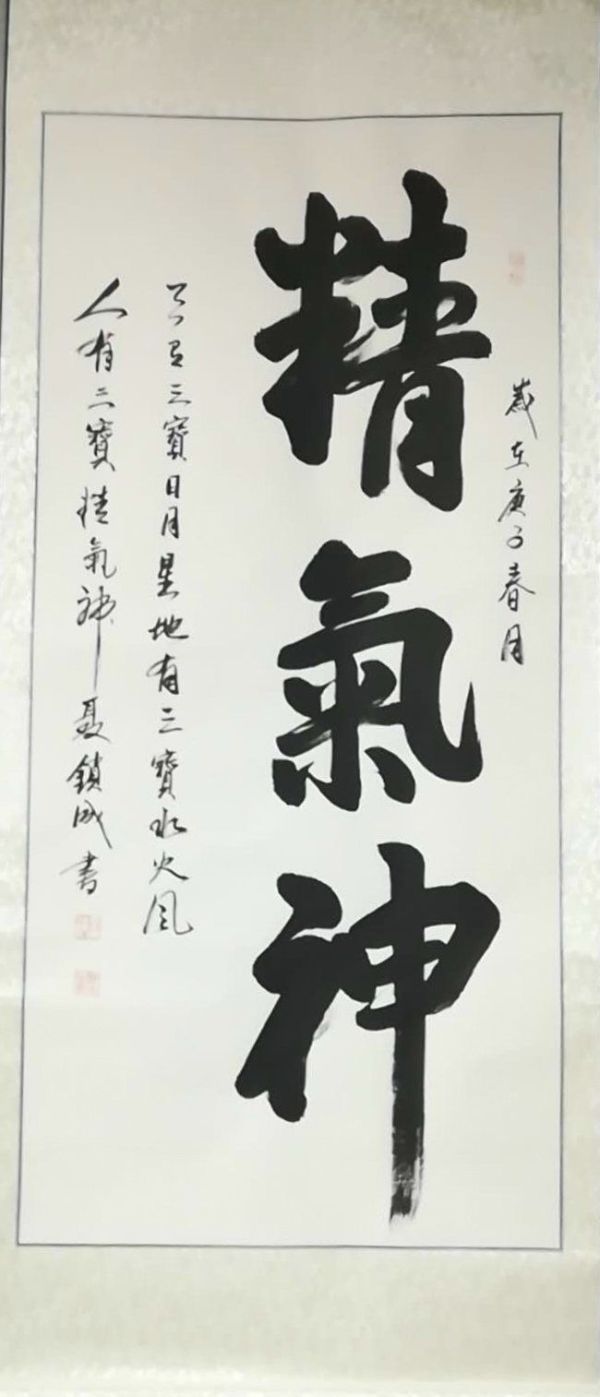 歲在庚子春月
精氣神
天有三寶日月星地有三寶水火風
人有三寶精氣神聂鎖成書